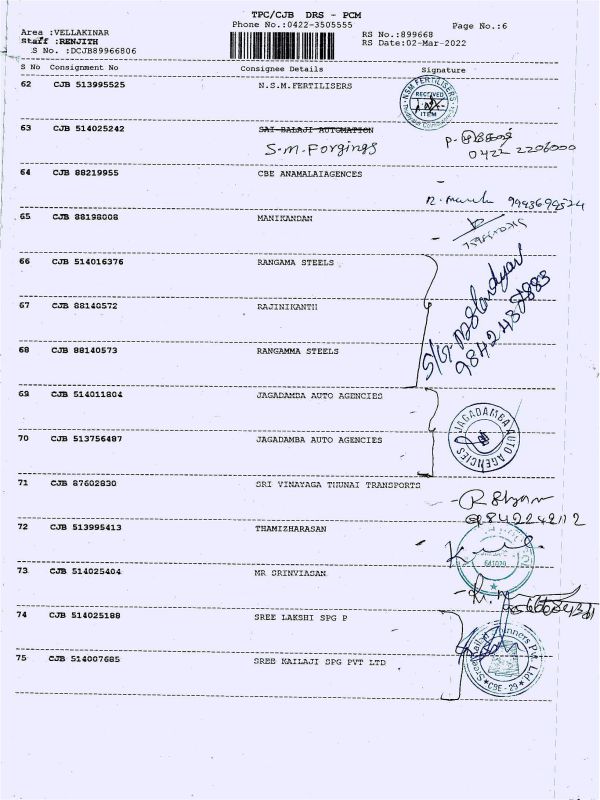 TPC/CJB DRS - PCM
Phone No.:0422-3505555
Page No.:6
Area :VELLAKINAR
Staff :RENJITH
S No. :DCJB89966806
RS No.:899668
RS Date:02-Mar-2022
S No Consignment No Consignee Details Signature
62 CJB 513995525 N.S.M.FERTILISERS
NSM FERTILISERS
RECEIVED
ITEM
63 CJB 514025242 SAI BALAJI AUTOMATION
S.M.Forgings
0422 2206000
64 CJB 88219955 CBE ANAMALAIAGENCES
65 CJB 88198008 MANIKANDAN
66 CJB 514016376 RANGAMA STEELS
67 CJB 88140572 RAJINIKANTH
9842437883
68 CJB 88140573 RANGAMMA STEELS
69 CJB 514011804 JAGADAMBA AUTO AGENCIES
70 CJB 513756487 JAGADAMBA AUTO AGENCIES
JAGADAMBA AUTO AGENCIES
71 CJB 87602830 SRI VINAYAGA THUNAI TRANSPORTS
9842242112
72 CJB 513995413 THAMIZHARASAN
73 CJB 514025404 MR SRINVIASAN
74 CJB 514025188 SREE LAKSHI SPG P
75 CJB 514007685 SREE KAILAJI SPG PVT LTD
CBE - 29